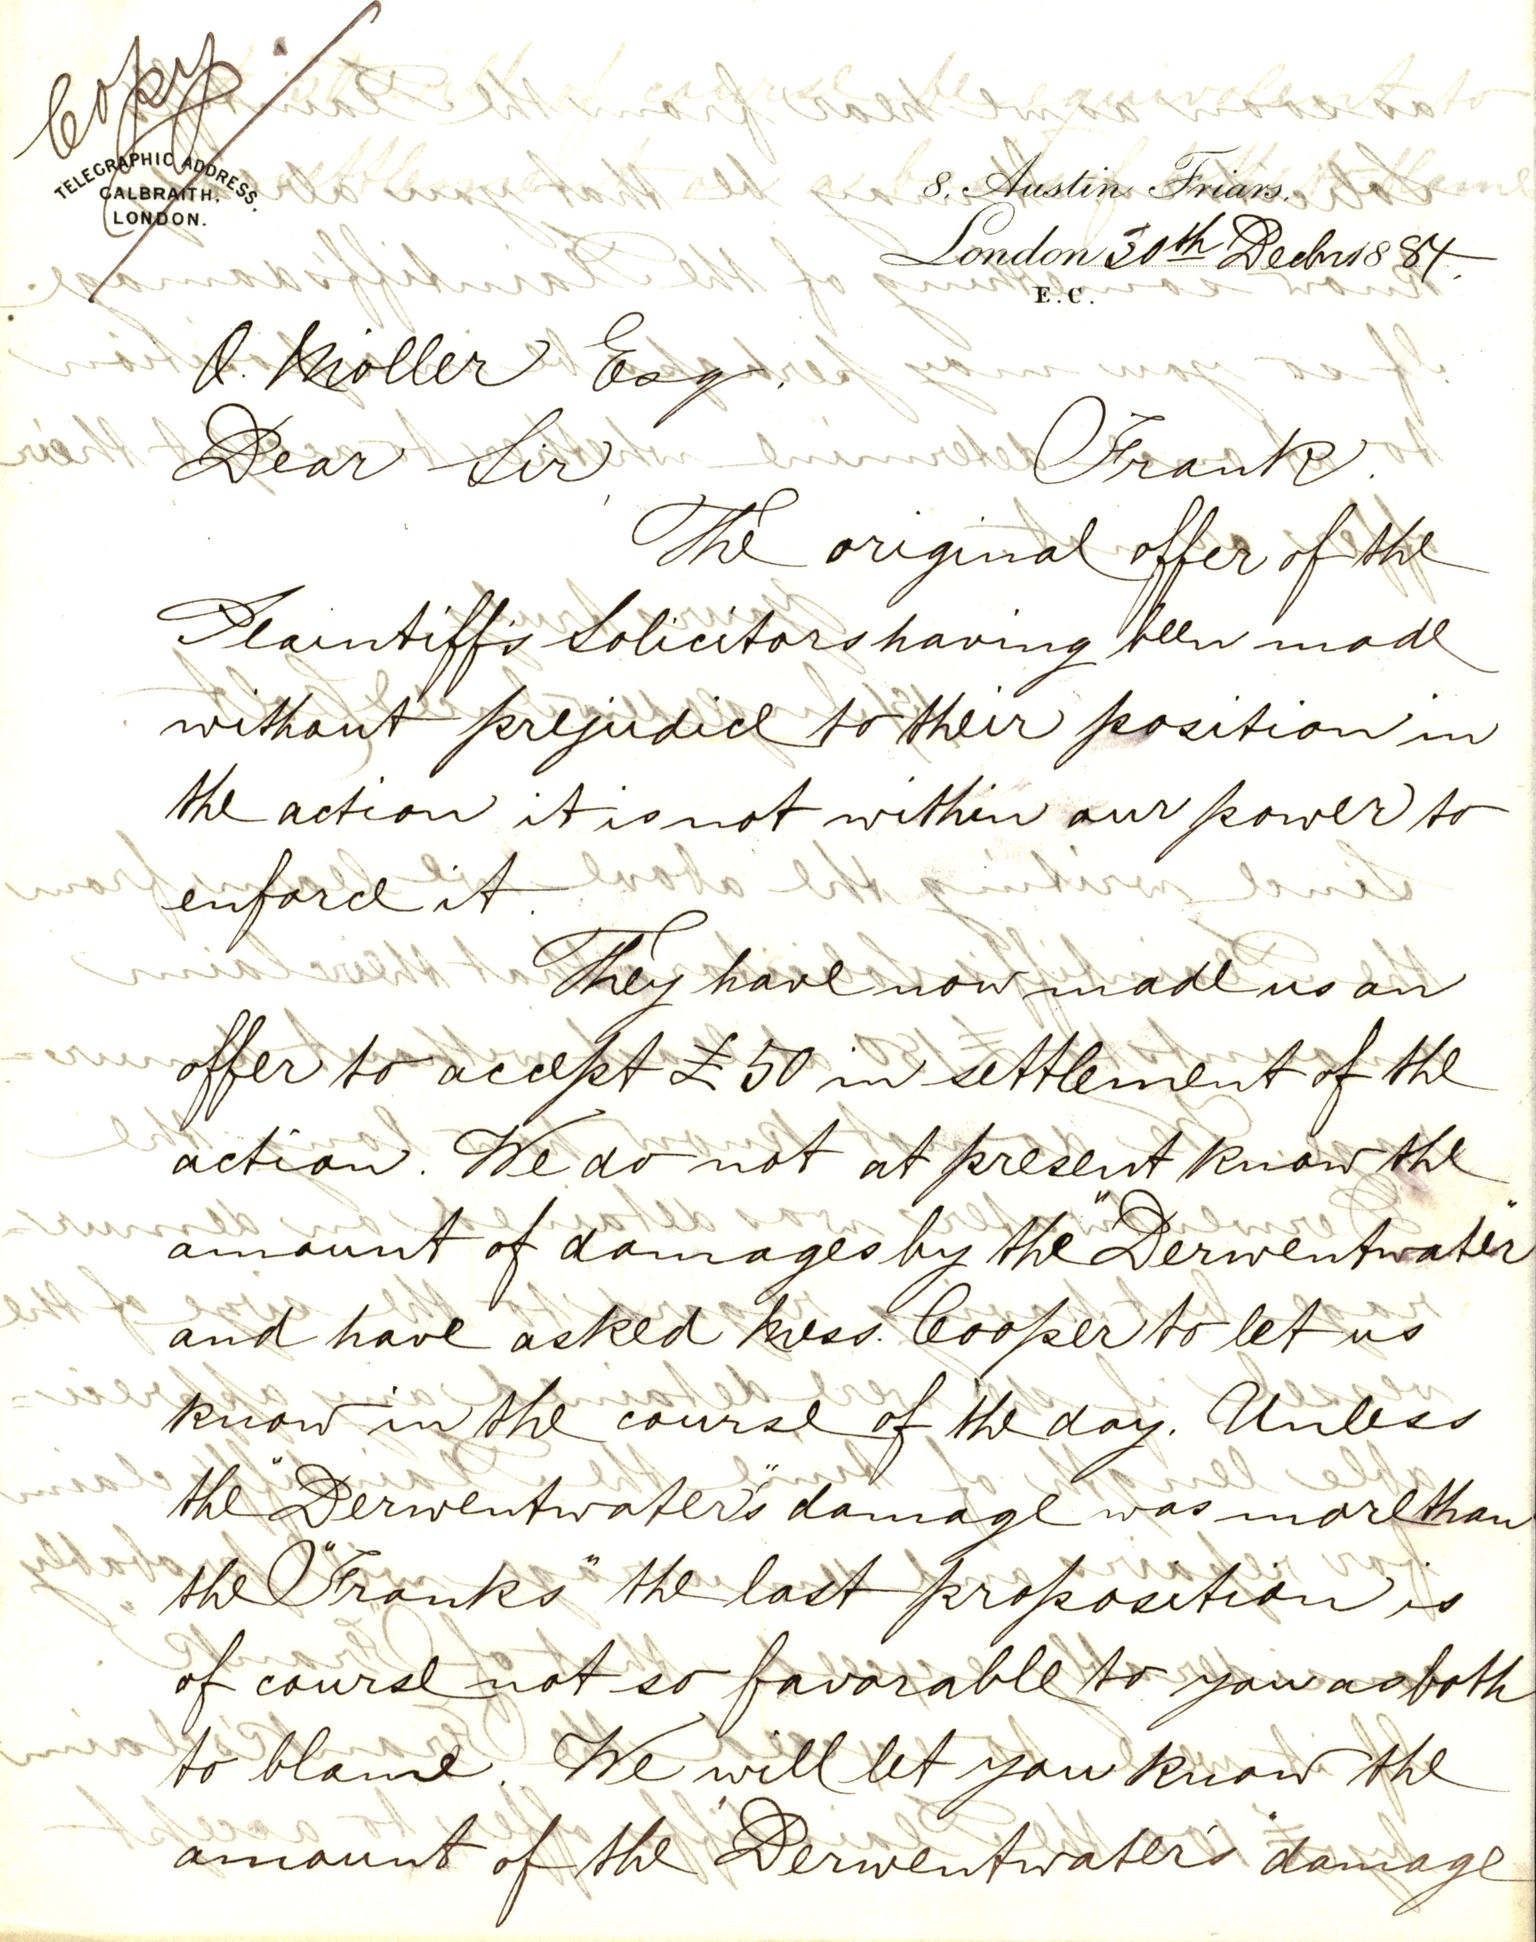 Copy
TELEGRAPHIC ADDRESS.
GALBRAITH.
LONDON.
8. Austin Friars.
London 30th Decbr 1884.
E.C.
O. Møller Esq.
Dear Sir, Frank.
The original offer of the
Plaintiffs Solicitors having been made
without prejudice to their position in
the action it is not within our power to
enforce it.
They have now made us an
offer to accept £50 in settlement of the
action. We do not at present know the
amount of damages by the "Derwentwater"
and have asked Mess. Cooper to let us
know in the course of the day. Unless
the "Derwentwater's" damage was more than
the "Franks" the last proposition is
of course not so favorable to you as both
to blame. We will let you know the
amount of the "Derwentwater's" damage